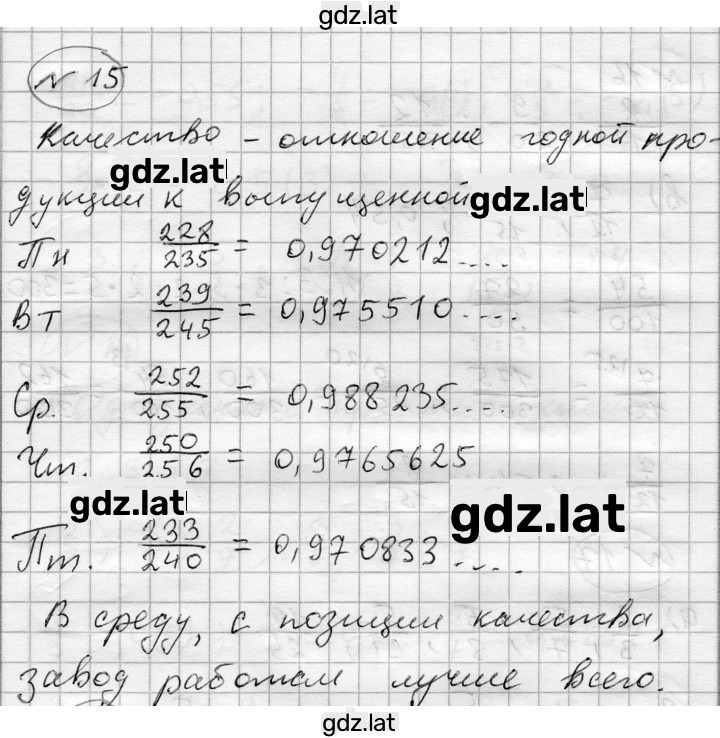 gdz.lat
N 15
Качество - отношение годной про-
gdz.lat
дукции к выпущенной gdz.lat
Пн 228/235 = 0,970212....
Вт 239/245 = 0,975510....
Ср. 252/255 = 0,988235....
Чт. 250/256 = 0,9765625
gdz.lat gdz.lat
Пт. 233/240 = 0,970833....
В среду, с позиции качества,
завод работал лучше всего.
gdz.lat